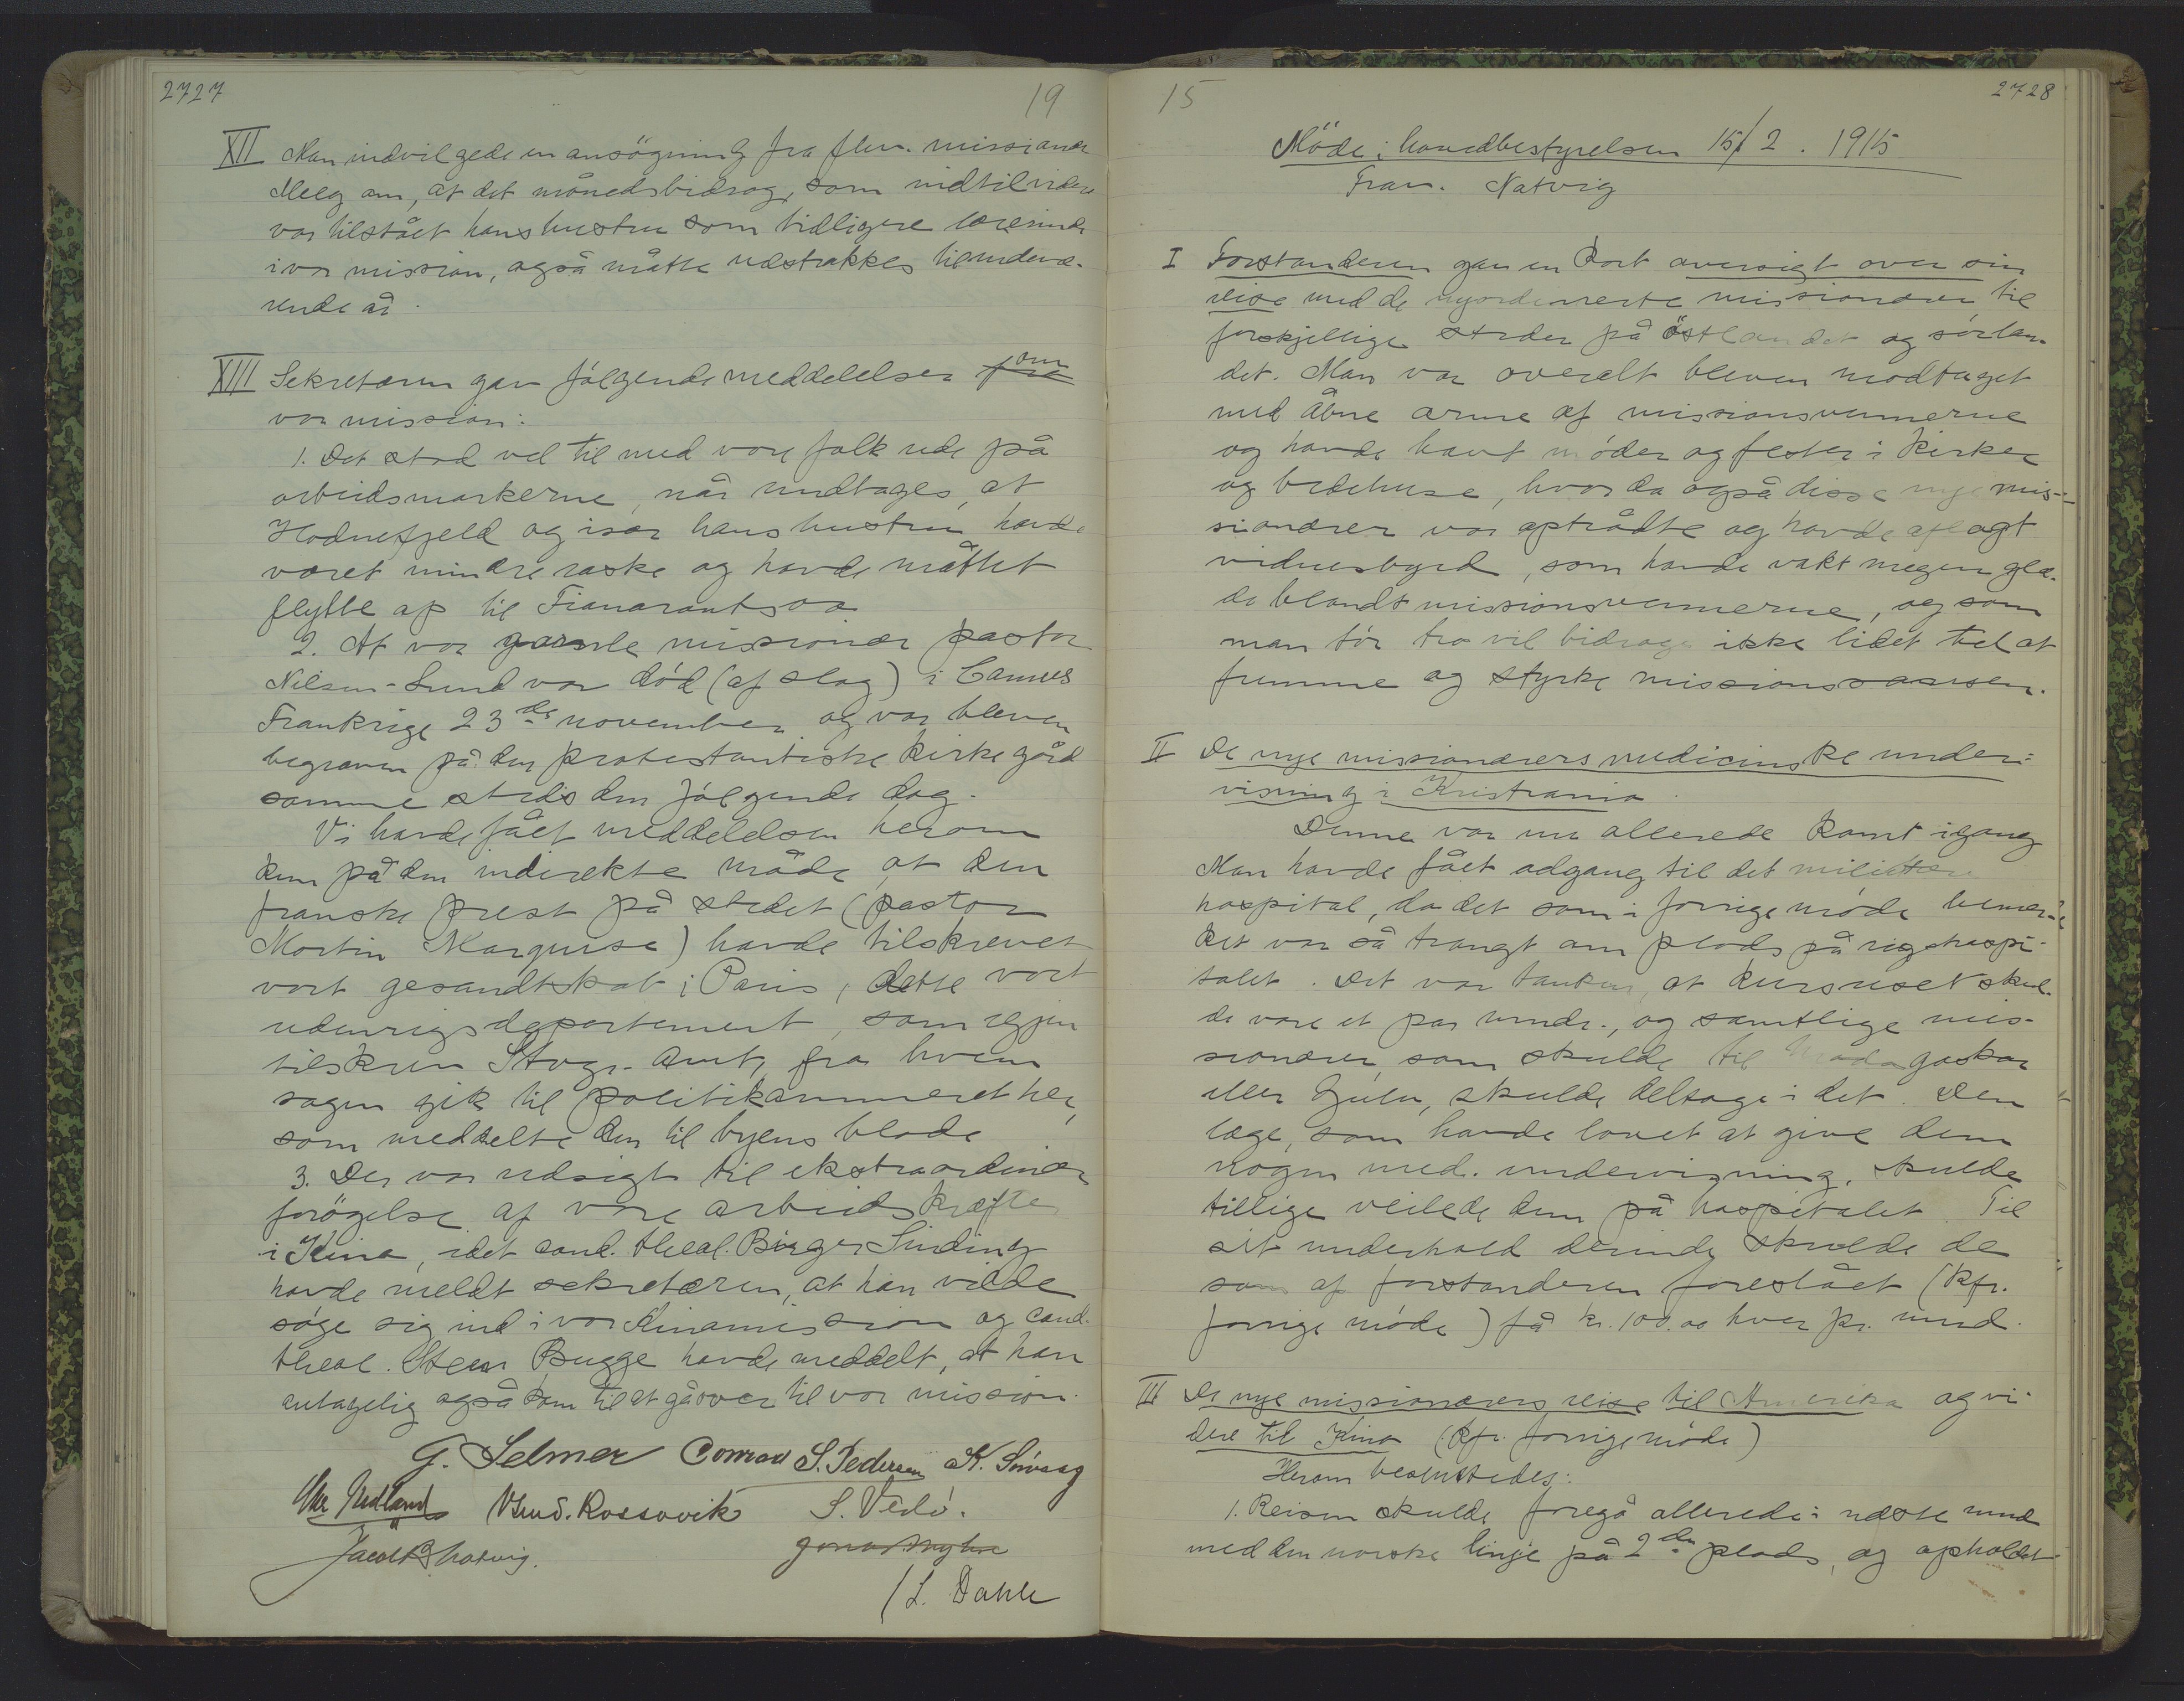 2727
19
XII Man indvilgede en ansögning fra fhv. missionær
Meeg om, at det månedsbidrag, som indtilvidere
var tilstået hans hustru som tidligere lærerinde
i vor mission, også måtte udstrækkes til indevæ-
rende år.
XIII Sekretæren gav følgende meddelelser fra om
vor mission:
1. Det stod vel til med vore folk ude på
arbeidsmarkerne, når undtages, at
Hodnefjeld og især hans hustru havde
været mindre raske og havde måttet
flytte op til Fianarantsoa
2. At vor gamle missionær pastor
Nilsen-Lund var död (af slag) i Cannes
Frankrige 23de november og var bleven
begraven på den protestantiske kirkegård
sammesteds den følgende dag.
Vi havde fået meddelelsen herom
kun på den indirekte måde, at den
franske prest på stedet (pastor
Mortin Marquise) havde tilskrevet
vort gesandtskab i Paris, dette vort
udenrigsdepartement, som igjen
tilskrev Stvgr. Amt, fra hvem
sagen gik til politikammeret her,
som meddelte den til byens blade.
3. Der var udsigt til ekstraordinær
forögelse af vore arbeidskræfter
i Kina, idet cand. theol. Birger Sinding
havde meldt sekretæren, at han vilde
søge sig ind i vor Kinamission og cand.
theol. Sten Bugge havde meddelt, at han
antagelig også kom til at gå over til vor mission.
G. Selmer Conrad S. Pedersen K. Sörvaag
Chr. Nedland Knud. Rossavik S. Vedö.
Jacob Natvig. Jonas Myhre
/L. Dahle
15
2728
Möde i hovedbestyrelsen 15/2. 1915
Frav. Natvig
I Forstanderen gav en kort oversigt over sin
reise med de nyordinerte missionærer til
forskjellige steder på östlandet og sörlan-
det. Man var overalt bleven modtaget
med åbne arme af missionsvennerne
og havde havt möder og fester i kirker
og bedehuse, hvor da også disse nye mis-
sionærer var optrådte og havde aflagt
vidnesbyrd, som havde vakt megen glæ-
de blandt missionsvennerne, og som
man tör tro vil bidrage ikke lidet til at
fremme og styrke missionssansen.
II De nye missionærers medicinske under-
visning i Kristiania.
Denne var nu allerede komt igang
Man havde fået adgang til det militære
hospital, da det som i forrige möde bemær-
ket var så trangt om plads på rigshospi-
talet. Det var tanken, at kursuset skul-
de vare et par mndr., og samtlige mis-
sionærer, som skulde til Madagaskar
eller Zulu, skulde deltage i det. Den
læge, som havde lovet at give dem
nogen med. undervisning, skulde
tillige veilede dem på hospitalet. Til
sit underhold derinde skulde de
som af forstanderen foreslået (kfr.
forrige möde) få kr. 100.00 hver pr. mnd.
III De nye missionærers reise til Amerika og vi-
dere til Kina (kfr. forrige möde)
Herom besluttedes:
1. Reisen skulde foregå allerede i næste mnd
med den norske linje på 2den plads, og opholdet